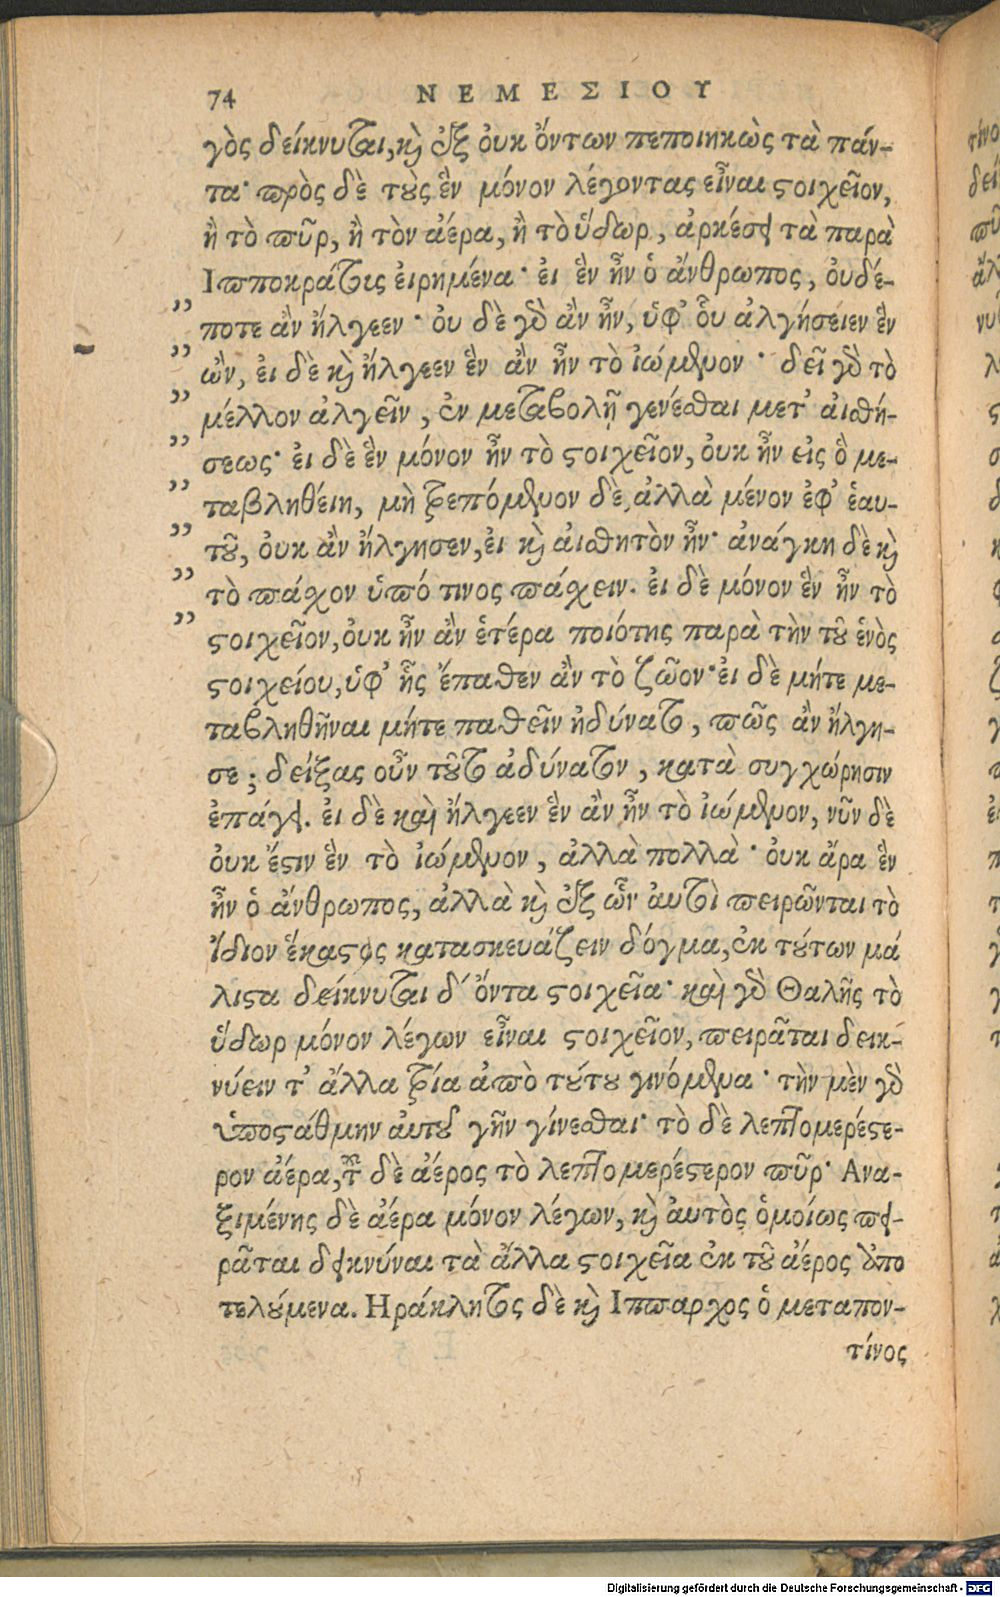 74 ΝΕΜΕΣΙΟΥ
γὸς δείκνυται, καὶ ἐξ ὀυκ ὄντων πεποιηκὼς τὰ πάν-
τα· πρὸς δὲ τοὺς ἓν μόνον λέγοντας εἶναι στοιχεῖον,
ἢ τὸ πῦρ, ἢ τὸν ἀέρα, ἢ τὸ ὕδωρ, ἀρκέσει τὰ παρὰ
Ιπποκράτους ἐιρημένα· ἐι ἓν ἦν ὁ ἄνθρωπος, ὀυδέ-
„ ποτε ἂν ἤλγεεν· ὀυ δὲ γὰρ ἂν ἦν, ὑφ' οὗ ἀλγήσειεν ἓν
„ ὢν, ἐι δὲ καὶ ἤλγεεν ἓν ἂν ἦν τὸ ἰώμενον· δεῖ γὰρ τὸ
„ μέλλον ἀλγεῖν, ἐν μεταβολῇ γενέσθαι μετ' ἀισθή-
„ σεως· ἐι δὲ ἓν μόνον ἦν τὸ στοιχεῖον, ὀυκ ἦν εἰς ὃ με-
„ ταβληθείη, μὴ τρεπόμενον δὲ, ἀλλὰ μένον ἐφ' ἑαυ-
„ τοῦ, ὀυκ ἂν ἤλγησεν, ἐι καὶ ἀισθητὸν ἦν· ἀνάγκη δὲ καὶ
„ τὸ πάσχον ὑπό τινος πάσχειν. ἐι δὲ μόνον ἓν ἦν τὸ
„ στοιχεῖον, ὀυκ ἦν ἂν ἑτέρα ποιότης παρὰ τὴν τοῦ ἑνὸς
στοιχείου, ὑφ' ἧς ἔπαθεν ἂν τὸ ζῶον· ἐι δὲ μήτε με-
ταβληθῆναι μήτε παθεῖν ἠδύνατο, πῶς ἂν ἤλγη-
σε; δείξας οὖν τοῦτο ἀδύνατον, κατὰ συγχώρησιν
ἐπάγει. ἐι δὲ καὶ ἤλγεεν ἓν ἂν ἦν τὸ ἰώμενον, νῦν δὲ
ὀυκ ἔστιν ἓν τὸ ἰώμενον, ἀλλὰ πολλὰ· ὀυκ ἄρα ἓν
ἦν ὁ ἄνθρωπος, ἀλλὰ καὶ ἐξ ὧν ἀυτοὶ πειρῶνται τὸ
ἴδιον ἕκαστος κατασκευάζειν δόγμα, ἐκ τούτων μά
λιστα δείκνυται δ' ὄντα στοιχεῖα· καὶ γὰρ Θαλῆς τὸ
ὕδωρ μόνον λέγων εἶναι στοιχεῖον, πειρᾶται δεικ-
νύειν τ' ἄλλα τρία ἀπὸ τούτου γινόμενα· τὴν μὲν γὰρ
ὑποστάθμην ἀυτοῦ γῆν γίνεσθαι· τὸ δὲ λεπτομερέστε-
ρον ἀέρα, τοῦ δὲ ἀέρος τὸ λεπτομερέστερον πῦρ· Ανα-
ξιμένης δὲ ἀέρα μόνον λέγων, καὶ ἀυτὸς ὁμοίως πει-
ρᾶται δεικνύναι τὰ ἄλλα στοιχεῖα ἐκ τοῦ ἀέρος ἀπο
τελούμενα. Ηράκλητος δὲ καὶ Ιππαρχος ὁ μεταπον-
τίνος
Digitalisierung gefördert durch die Deutsche Forschungsgemeinschaft - DFG